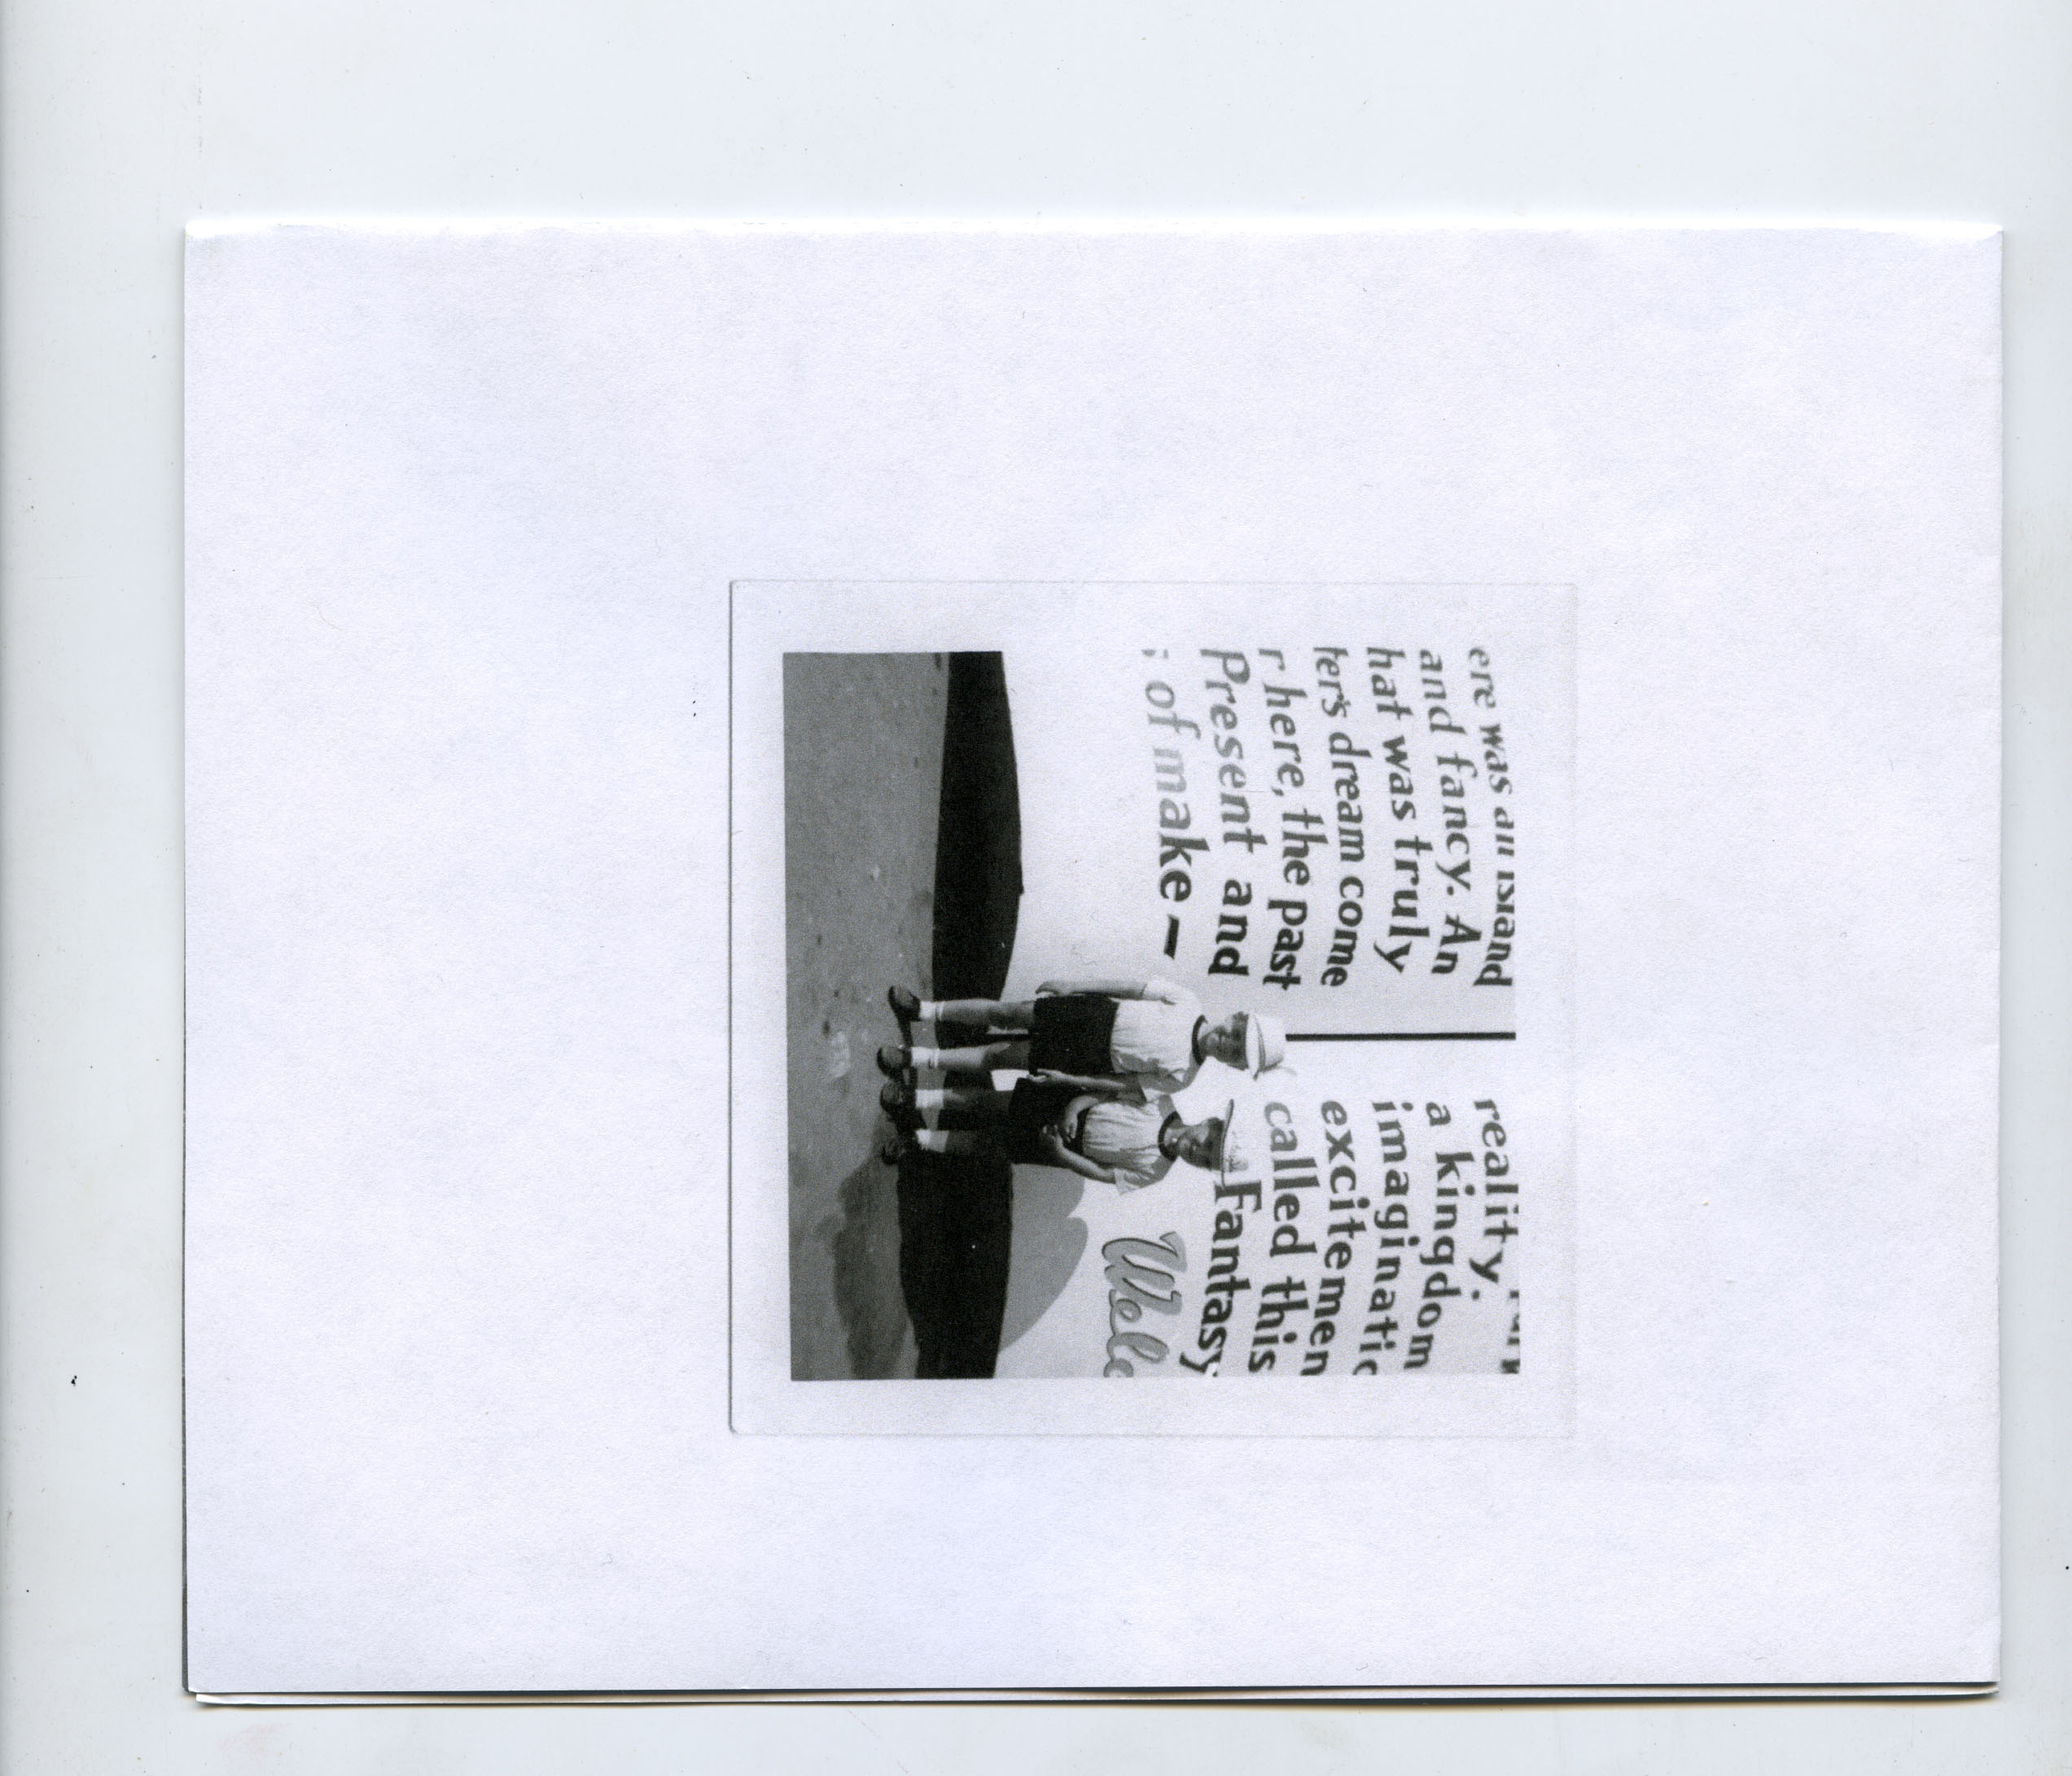 ere was an island
and fancy. An
hat was truly
ter's dream come
r here, the past
Present and
of make –
reality.
a kingdom
imaginatic
excitemen
called this
Fantasy
Welc